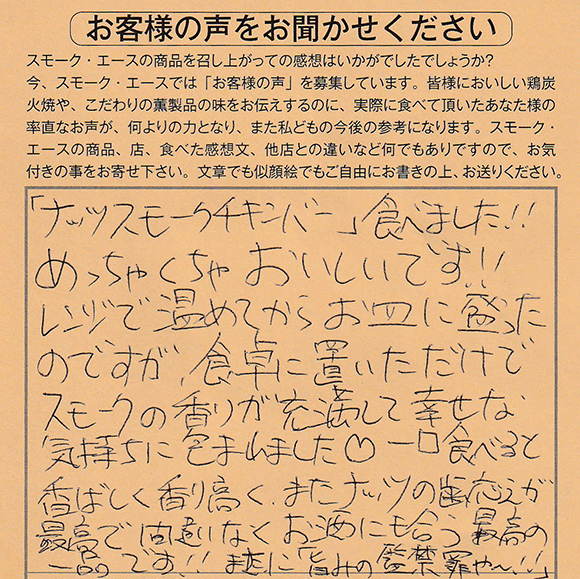 お客様の声をお聞かせください
スモーク・エースの商品を召し上がっての感想はいかがでしたでしょうか?
今、スモーク・エースでは「お客様の声」を募集しています。皆様においしい鶏炭
火焼や、こだわりの薫製品の味をお伝えするのに、実際に食べて頂いたあなた様の
率直なお声が、何よりの力となり、また私どもの今後の参考になります。スモーク・
エースの商品、店、食べた感想文、他店との違いなど何でもありですので、お気
付きの事をお寄せ下さい。文章でも似顔絵でもご自由にお書きの上、お送りください。
「ナッツスモークチキンバー」食べました!!
めっちゃくちゃおいしいです!!
レンジで温めてからお皿に盛った
のですが、食卓に置いただけで
スモークの香りが充満して幸せな
気持ちに包まれました♡ 一口食べると
香ばしく香り高く、またナッツの歯応えが
最高で間違いなくお酒にも合う最高の
一品です!! まさに「旨みの